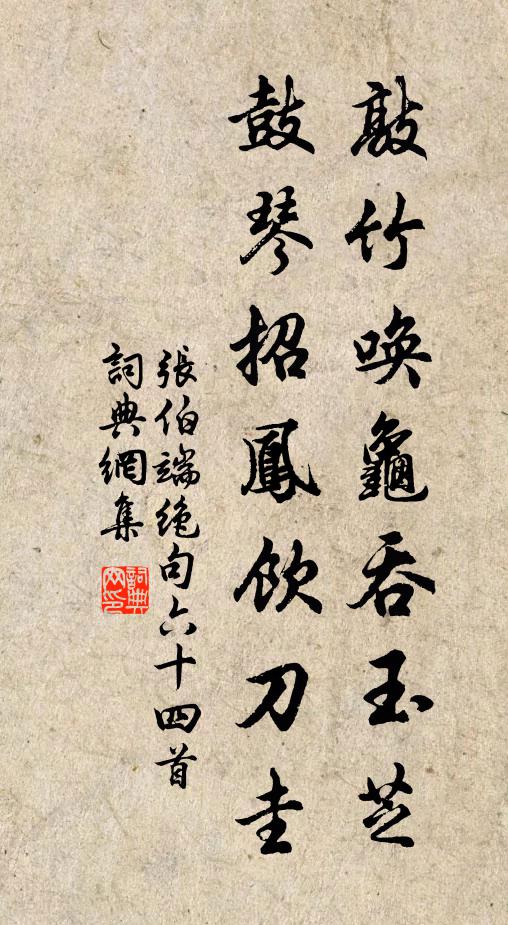 敲竹喚龜吞玉芝
鼓琴招鳳飲刀圭
張伯端絶句六十四首
詞典網集
詞典網印